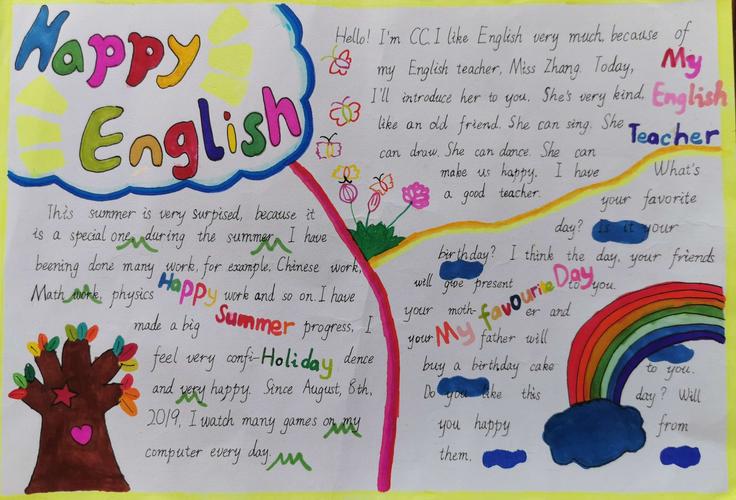 Happy
English
Hello! I'm CC. I like English very much, because of
my English teacher, Miss Zhang. Today,
I'll introduce her to you. She's very kind,
like an old friend. She can sing. She
can draw. She can dance. She can
make us happy. I have
a good teacher.
My
English
Teacher
This summer is very surpised, because it
is a special one, during the summer. I have
beening done many work, for example, Chinese work,
Math work, physics work and so on. I have
made a big progress, I
feel very confi- dence
and very happy. Since August, 8th,
2019, I watch many games on my
computer every day.
Happy
Summer
Holiday
What's
your favorite
day? Is it your
birthday? I think the day, your friends
will give present to you.
your moth- er and
your father will
buy a birthday cake to you.
Do you like this day? Will
you happy from
them.
My favourite Day